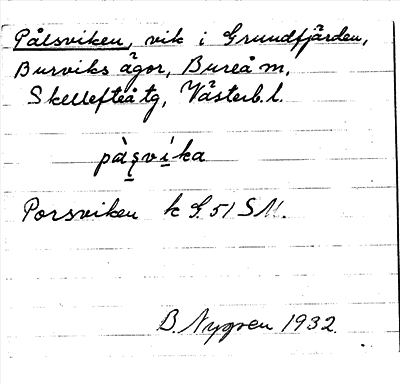 Pålsviken, vik i Grundfjärden,
Burviks ägor, Bureå m,
Skellefteå tg, Västerb. l.
Porsviken k G. 51 S N.
B. Nygren 1932.